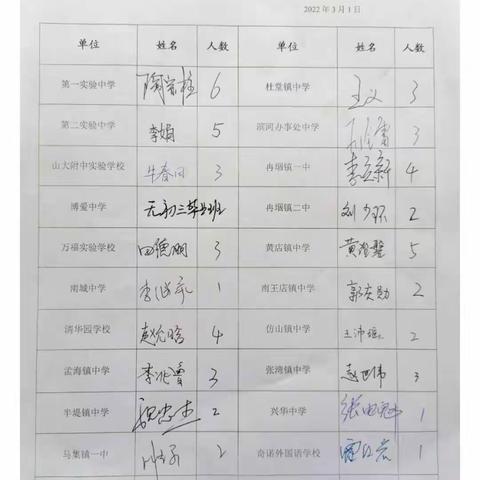 2022年3月1日
单位 姓名 人数 单位 姓名 人数
第一实验中学 6 杜堂镇中学 王义 3
第二实验中学 李娟 5 滨河办事处中学 3
山大附中实验学校 牛春日 3 冉堌镇一中 李立新 4
博爱中学 无初三毕业班 冉堌镇二中 2
万福实验学校 田德明 3 黄店镇中学 5
南城中学 1 南王店镇中学 郭庆勋 2
清华园学校 4 仿山镇中学 2
孟海镇中学 李兆曾 3 张湾镇中学 赵世伟 3
半堤镇中学 魏忠杰 2 兴华中学 1
马集镇一中 2 奇诺外国语学校 1